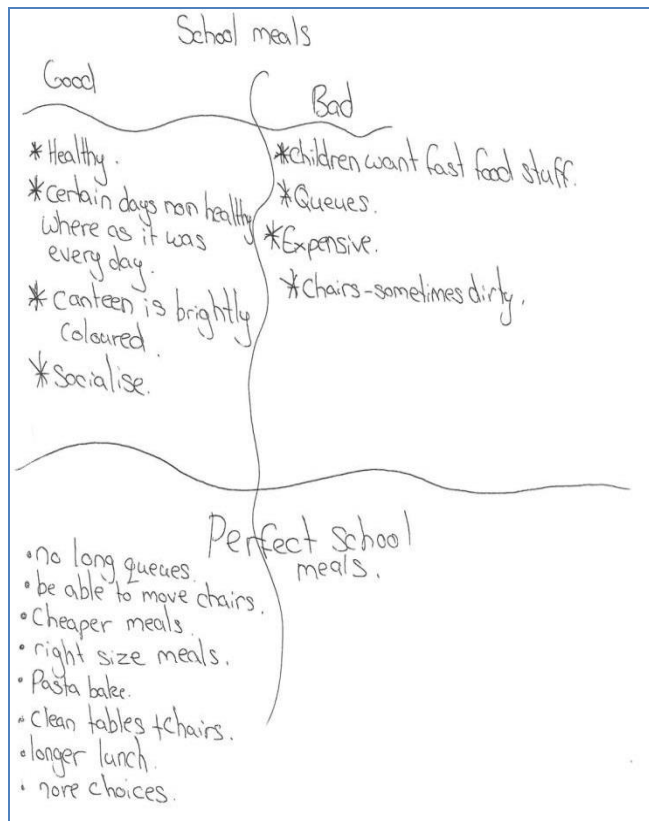 School meals
Good
* Healthy.
* certain days non healthy
where as it was
every day.
* canteen is brightly
coloured.
* Socialise.
Bad
* children want fast food stuff.
* Queues.
* Expensive.
* Chairs - sometimes dirty.
Perfect school
meals.
• no long queues.
• be able to move chairs.
• Cheaper meals.
• right size meals.
• Pasta bake.
• Clean tables + chairs.
• longer lunch.
• more choices.